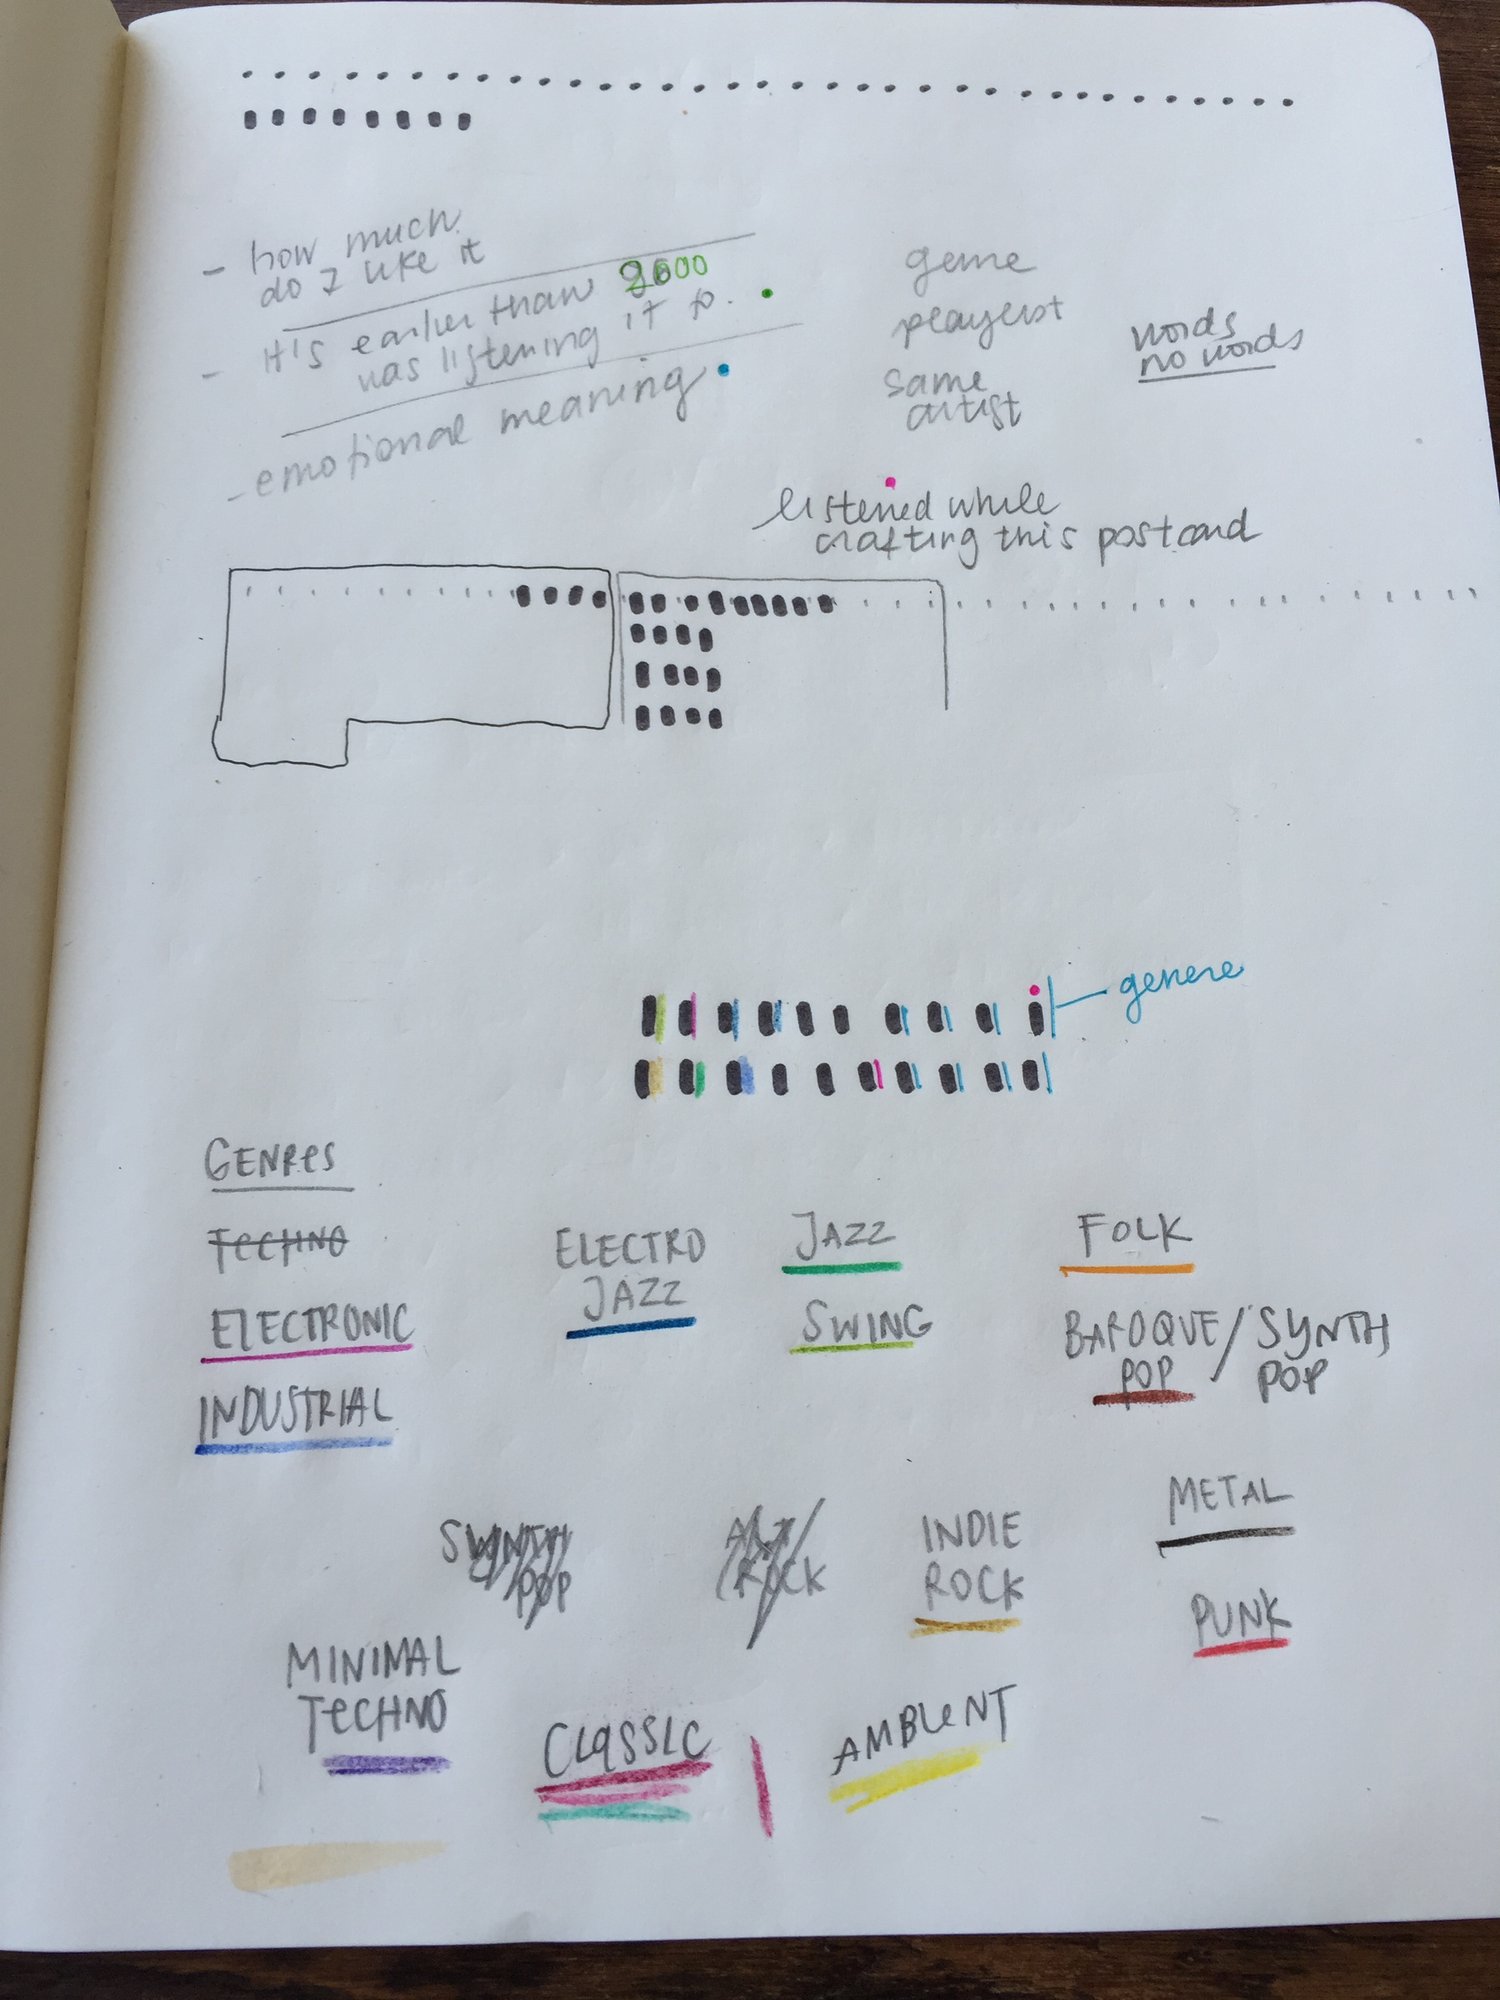 - how much
do I like it
- it's earlier than 2000
was listening it to.
- emotional meaning
genre
playlist
same
artist
words
no words
listened while
crafting this postcard
genere
GENRES
TECHNO
ELECTRONIC
INDUSTRIAL
ELECTRO
JAZZ
JAZZ
SWING
FOLK
BAROQUE / SYNTH
POP POP
SYNTH
POP
ALT/
ROCK
INDIE
ROCK
METAL
PUNK
MINIMAL
TECHNO
CLASSIC
AMBIENT